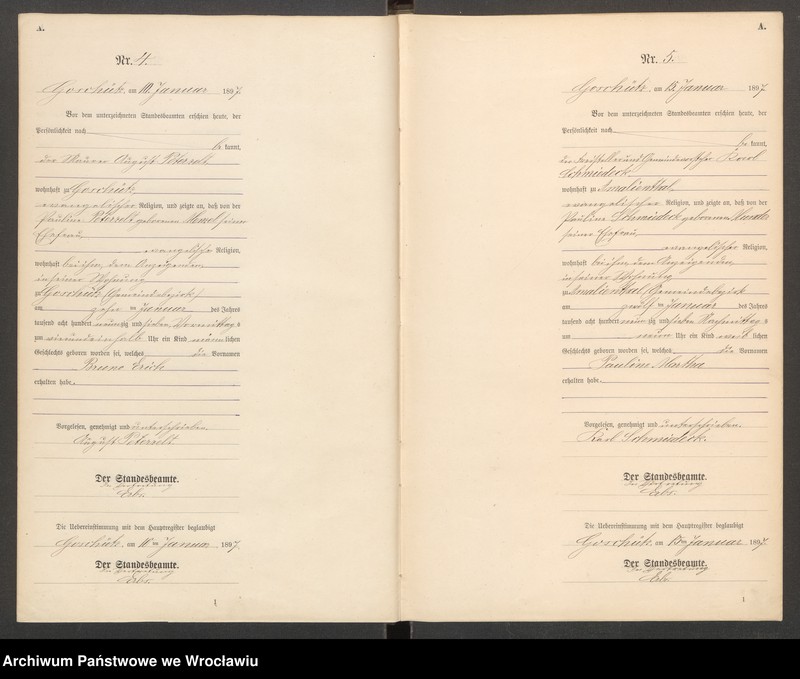 A.
Nr. 4.
Goschütz, am 11. Januar 1897.
Vor dem unterzeichneten Standesbeamten erschien heute, der
Persönlichkeit nach
be kannt,
der Maurer August Peterselt
wohnhaft zu Goschütz
evangelischer Religion, und zeigte an, daß von der
Pauline Peterselt geborenen Menzel seiner
Ehefrau
evangelischer Religion,
wohnhaft bei ihm, dem Anzeigenden
in seiner Wohnung
zu Goschütz (Gemeindebezirk)
am ten Januar des Jahres
tausend acht hundert neunzig und sieben Vormittags
um Uhr ein Kind männ lichen
Geschlechts geboren worden sei, welches die Vornamen
Bruno Erich
erhalten habe.
Vorgelesen, genehmigt und unterschrieben
August Peterselt
Der Standesbeamte.
In Vertretung
Erbr.
Die Uebereinstimmung mit dem Hauptregister beglaubigt
Goschütz, am 11ten Januar 1897.
Der Standesbeamte.
In Vertretung
Erbr.
1
A.
Nr. 5.
Goschütz, am 15. Januar 1897.
Vor dem unterzeichneten Standesbeamten erschien heute, der
Persönlichkeit nach
be kannt,
der Freisteller und Gemeindevorsteher Karl
Schmiedeck
wohnhaft zu Amalienthal
evangelischer Religion, und zeigte an, daß von der
Pauline Schmiedeck geborenen
seiner Ehefrau
evangelischer Religion,
wohnhaft bei ihm dem Anzeigenden
in seiner Wohnung
zu Amalienthal, Gemeindebezirk
am zwölf ten Januar des Jahres
tausend acht hundert neun zig und sieben Nachmittags
um neun Uhr ein Kind weib lichen
Geschlechts geboren worden sei, welches die Vornamen
Pauline Martha
erhalten habe.
Vorgelesen, genehmigt und unterschrieben.
Karl Schmiedeck.
Der Standesbeamte.
In Vertretung
Erbr.
Die Uebereinstimmung mit dem Hauptregister beglaubigt
Goschütz, am 15ten Januar 1897.
Der Standesbeamte.
In Vertretung
Erbr.
1
Archiwum Państwowe we Wrocławiu